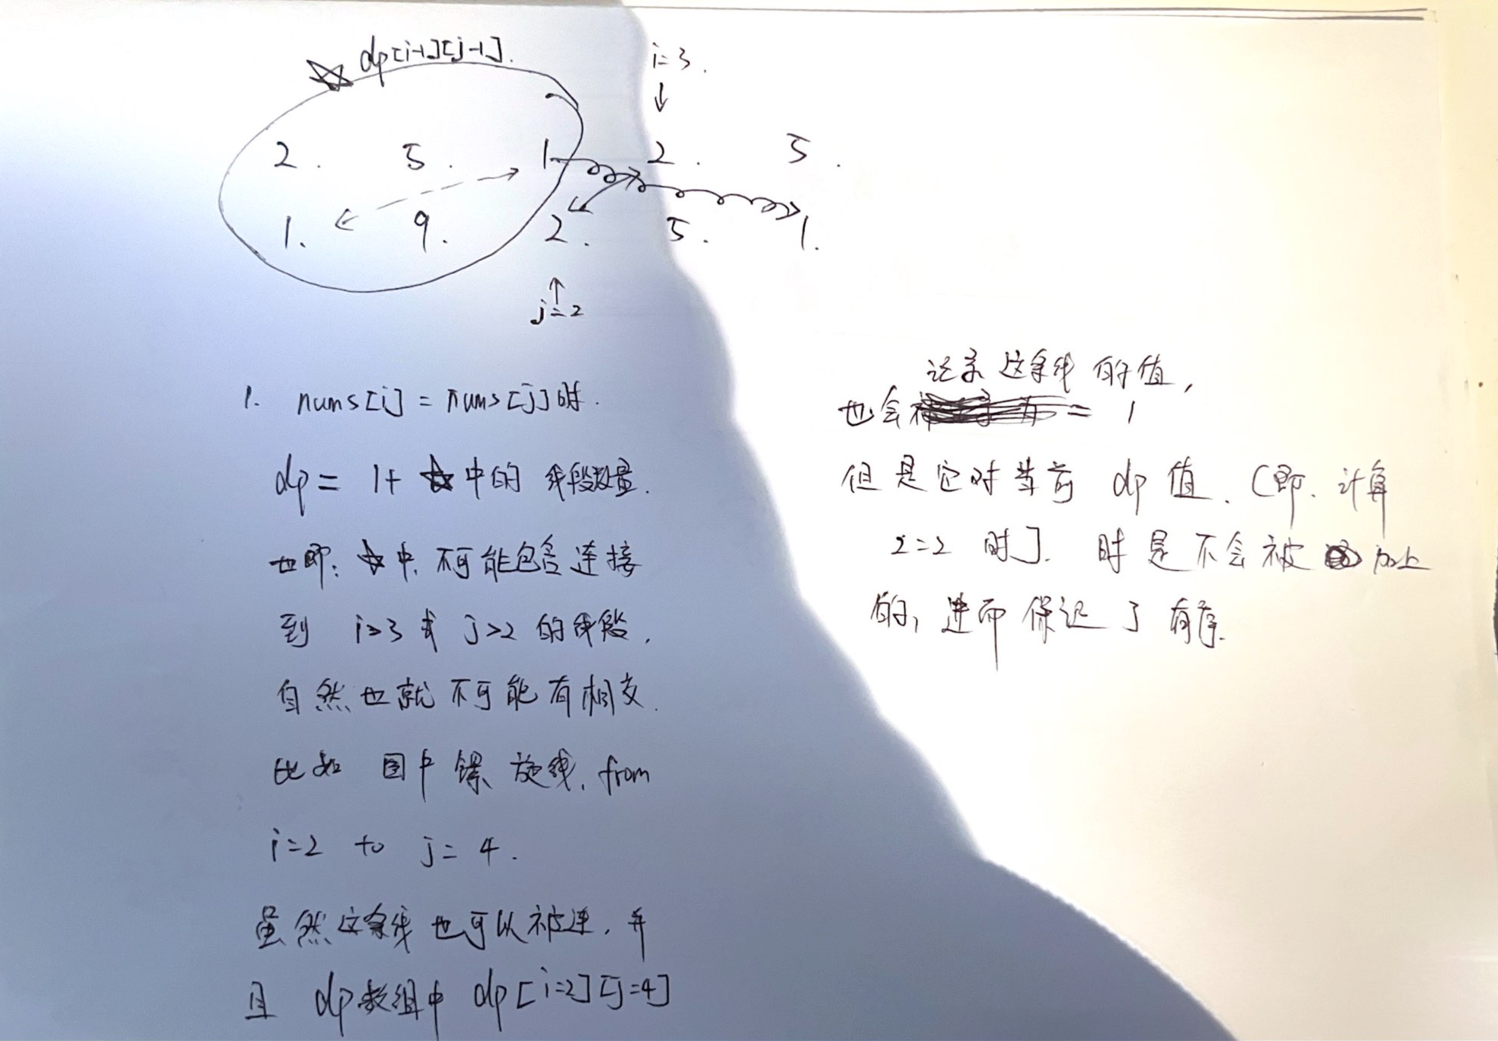 ☆ dp[i-1][j-1].
i=3.
↓
2. 5. 1 2. 5.
1. 9. 2. 5. 1.
↑
j=2
1. nums[i] = nums[j]时.
dp = 1+ ☆中的 线段数量.
也即: ☆中, 不可能包含连接
到 i>3 或 j>2 的线段,
自然也就不可能有相交.
比如 图中 螺旋线, from
i=2 to j=4.
虽然这条线也可以被连, 并
且 dp数组中 dp[i=2][j=4]
记录这条线的值,
也会 = 1
但是它对当前 dp 值. (即. 计算
2=2 时]. 时是不会被 加上
的, 进而保证了有序.